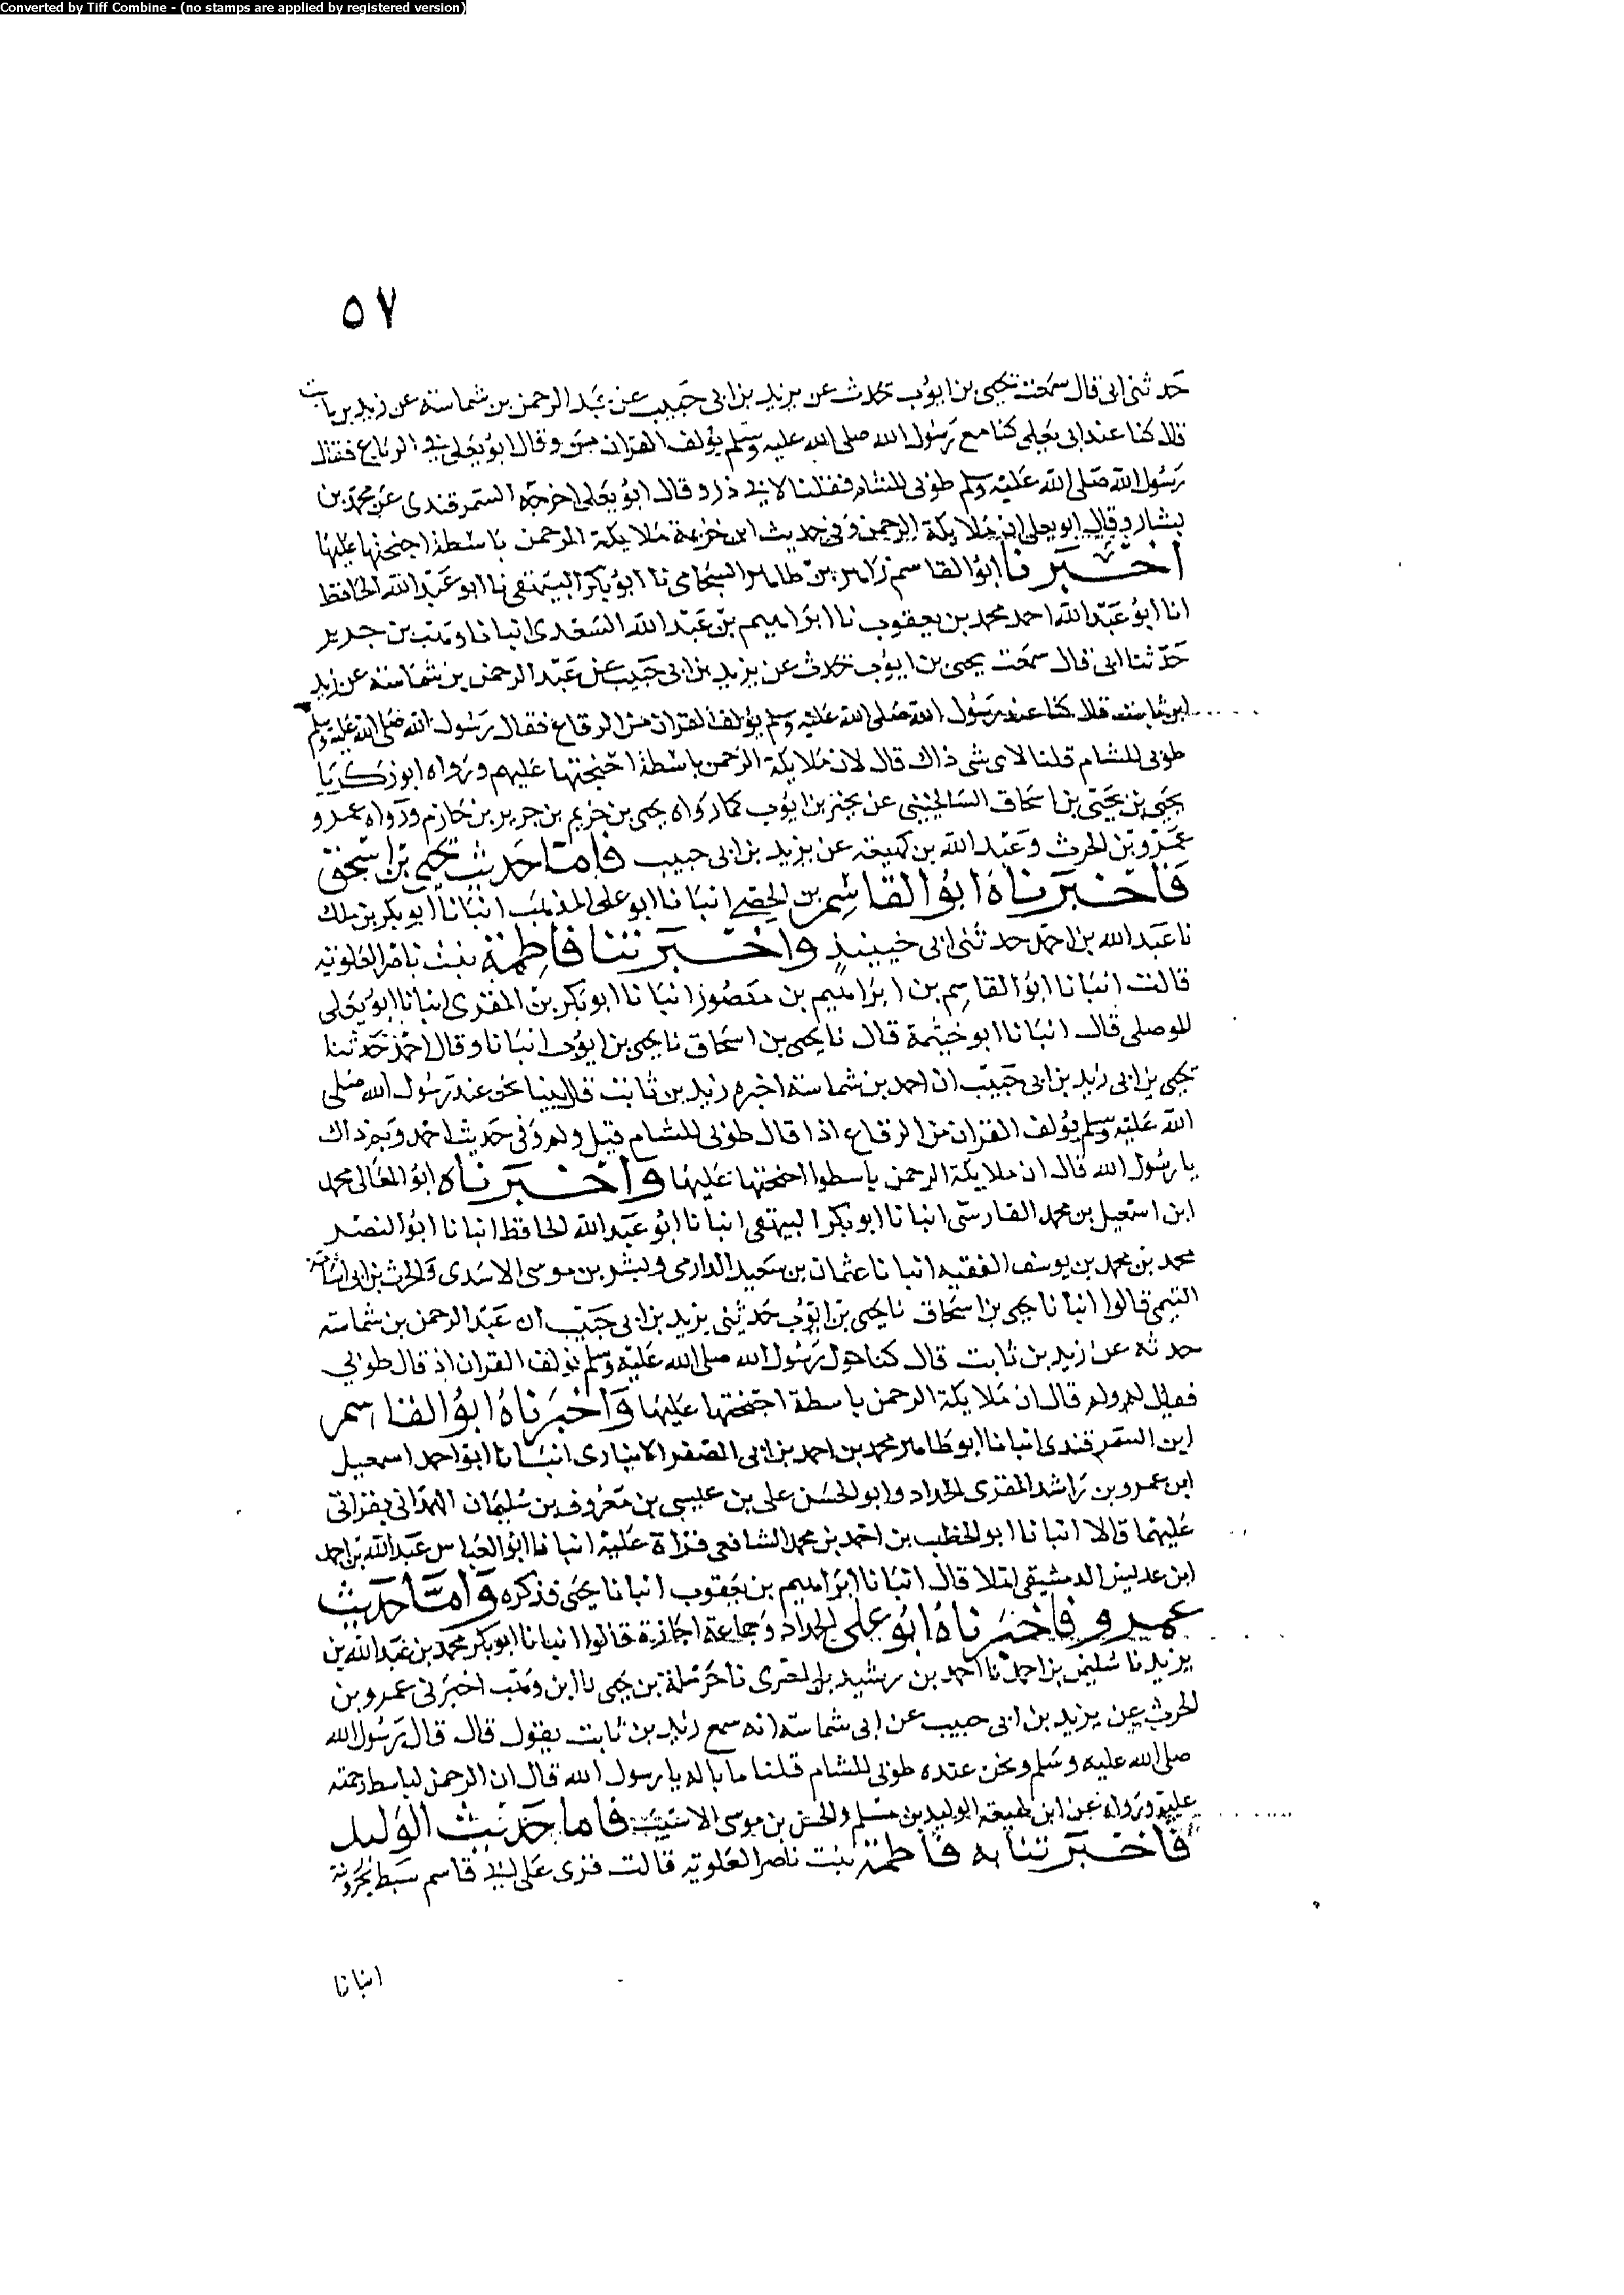 Converted by Tiff Combine - (no stamps are applied by registered version)
٥٧
حدثنى ابى قال سمعت يحيى بن ايوب يحدث عن يزيد بن ابى حبيب عن عبد الرحمن بن شماسة عن زيد بن ثابت
قال كنا عند ابى يعلى كنا مع رسول الله صلى الله عليه وسلم يؤلف القران من وقال ابو يعلى فى الرقاع فقال
رسول الله صلى الله عليه وسلم طوبى للشام فقلنا لاى ذر وقال ابو يعلى اخرجه السمرقندى عن محمد بن
بشار وقال ابو يعلى ان ملايكة الرحمن وفى حديث ابن خزيمة ملايكة الرحمن باسطة اجنحتها عليها
اخبرنا ابو القاسم زاهر بن طاهر الشحامى نا ابو بكر البيهقى نا ابو عبد الله الحافظ
انا ابو عبد الله احمد محمد بن يعقوب نا ابراهيم بن عبد الله السعدى انبانا وهب بن جرير
حدثنا ابى قال سمعت يحيى بن ايوب يحدث عن يزيد بن ابى حبيب عن عبد الرحمن بن شماسة عن زيد
ابن ثابت قال كنا عند رسول الله صلى الله عليه وسلم يؤلف القران من الرقاع فقال رسول الله صلى الله عليه وسلم
طوبى للشام قلنا لاى شى ذاك قال لان ملايكة الرحمن باسطة اجنحتها عليهم ورواه ابو زكريا
يحيى بن يحيى بن اسحاق السالحينى عن يحيى بن ايوب كما رواه يحيى بن خزيم بن جرير بن حازم ورواه عمرو
عمرو بن الحرث وعبد الله بن لهيعة عن يزيد بن ابى حبيب فاما حديث يحيى بن اسحق
فاخبرناه ابو القاسم بن الحصين انبانا ابو على المذهب انبانا ابو بكر بن ملك
نا عبد الله بن احمد حدثنى ابى واخبرتنا فاطمة بنت ناصر العلوية
قالت انبانا ابو القاسم بن ابراهيم بن منصور انبانا ابو بكر بن المقرى انبانا ابو يعلى
الموصلى قال انبانا ابو خيثمة قال نا يحيى بن اسحاق نا يحيى بن ايوب انبانا وقال احمد حدثنا
يحيى بن ابى زيد بن ابى حبيب ان احمد بن شماسة اخبره زيد بن ثابت قال بينا نحن عند رسول الله صلى
الله عليه وسلم يؤلف القران من الرقاع اذا قال طوبى للشام قيل ولم وفى حديث احمد ذاك
يا رسول الله قال ان ملايكة الرحمن باسطوا اجنحتها عليها واخبرناه ابو المعالى محمد
ابن اسمعيل بن محمد الفارسى انبانا ابو بكر البيهقى انبانا ابو عبد الله الحافظ انبانا ابو النضر
محمد بن محمد بن يوسف الفقيه انبانا عثمان بن سعيد الدارمى وبشر بن موسى الاسدى والحرث بن ابى اسامة
التيمى قالوا انبانا يحيى بن اسحاق نا يحيى بن ايوب حدثنى يزيد بن ابى حبيب ان عبد الرحمن بن شماسة
حدثه عن زيد بن ثابت قال كنا حول رسول الله صلى الله عليه وسلم نولف القران اذ قال طوبى
فقيل له ولم قال ان ملايكة الرحمن باسطة اجنحتها عليها واخبرناه ابو القاسم
ابن السمرقندى انبانا ابو طاهر محمد بن احمد بن ابى الصقر الانبارى انبانا ابو احمد اسمعيل
ابن عمرو بن راشد المقرى الحداد وابو الحسن على بن عيسى بن معروف بن سليمان الهمدانى بقراتى
عليهما قالا انبانا ابو الخطب بن احمد بن محمد الشافعى قراة عليه انبانا ابو العباس عبد الله بن احمد
ابن عدبس الدمشقى املا قال انبانا ابراهيم بن يعقوب انبانا يحيى فذكره واما حديث
عمرو فاخبرناه ابو على الحداد وجماعة اجازة قالوا انبانا ابو بكر محمد بن عبد الله بن
يزيد نا سليمن بن احمد نا احمد بن رشيد بن المصرى نا حرملة بن يحيى نا ابن وهب اخبرنى عمرو بن
الحرث عن يزيد بن ابى حبيب عن ابى شماسة انه سمع زيد بن ثابت يقول قال قال رسول الله
صلى الله عليه وسلم ونحن عنده طوبى للشام قلنا ما باله يا رسول الله قال ان الرحمن لباسط رحمته
عليه ورواه عن ابن لهيعة الوليد بن مسلم والحسن بن موسى الاشيب فاما حديث الوليد
فاخبرتنا به فاطمة بنت ناصر العلوية قالت قرى على قاسم سبط بحروية
انبانا